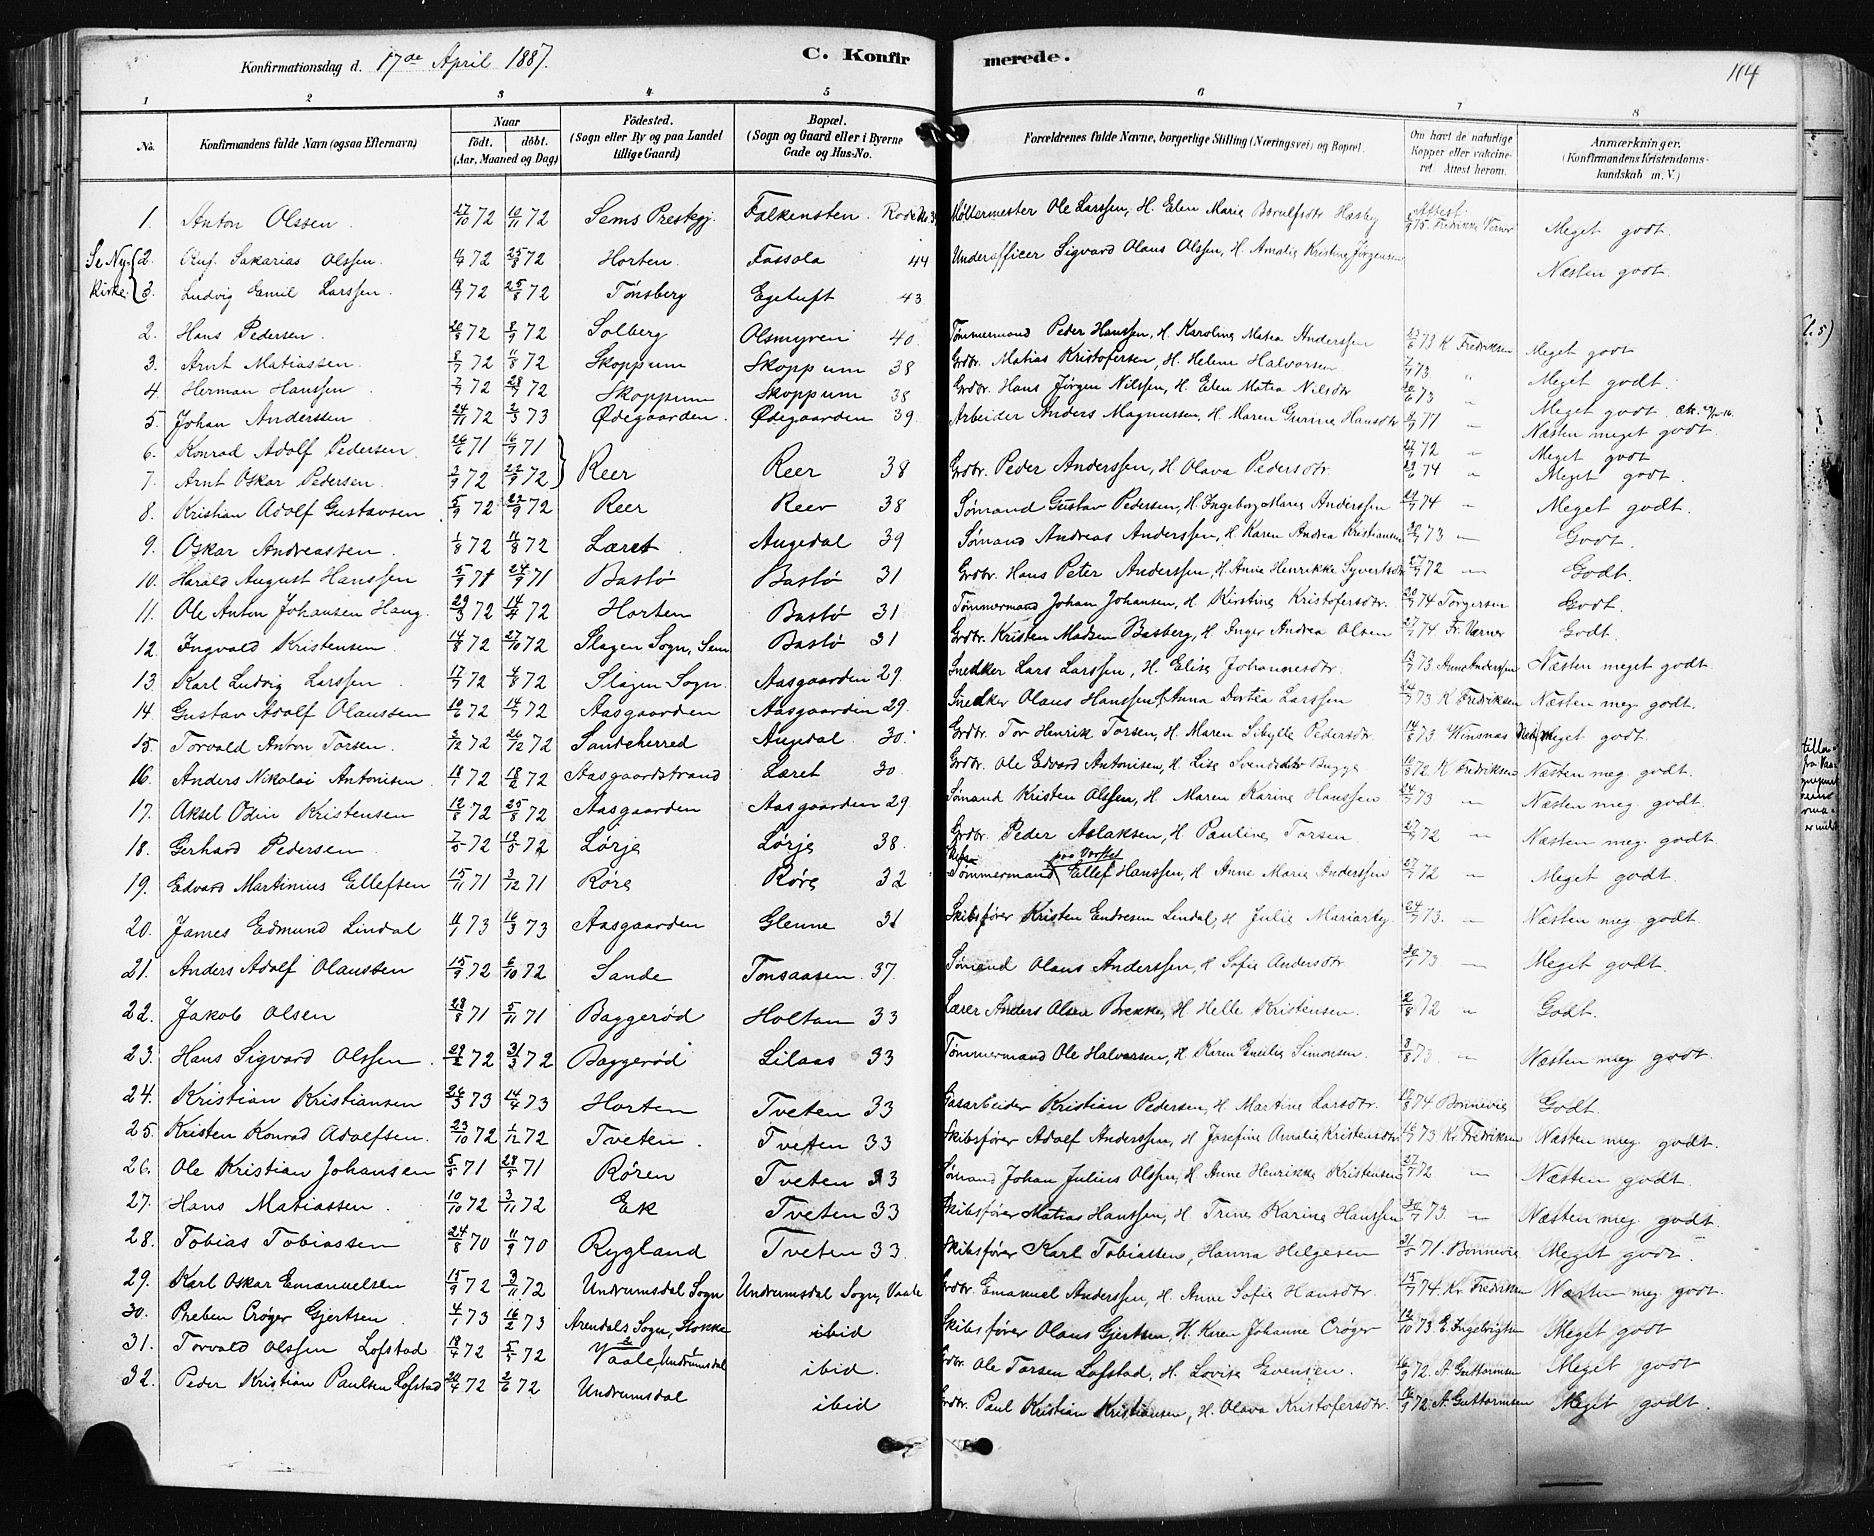 Konfirmationsdag d. 17de April 1887.
C. Konfirmerede.
114
1 2 3 4 5 6 7 8
No.
Konfirmandens fulde Navn (ogsaa Efternavn)
Naar
födt. döbt.
(Aar, Maaned og Dag)
Födested.
(Sogn eller By og paa Landet
tillige Gaard)
Bopæl.
(Sogn og Gaard eller i Byerne
Gade og Hus-No.
Forældrenes fulde Navne, borgerlige Stilling (Næringsvei) og Bopæl.
Om havt de naturlige
Kopper eller vakcine-
ret Attest herom.
Anmærkninger.
(Konfirmandens Kristendoms-
kundskab m. V.)
1. Anton Olssen. 17/10 72 72 Sems Prestgj. Falkensten. Møllermester Ole Larssen, H. Elen Marie Attest: Meget godt.
Se Ny-
Kirke
2. Sakarias Olssen. 72 25/8 72 Horten. Fossola 44 Underofficer Sigvard Olaus Olssen, H. Amalie Kristine Jörgensen Næsten godt.
3. Ludvig Emil Larssen. 18/7 72 25/8 72 Tönsberg Egetuft 43
2. Hans Pedersen. 72 72 Solberg Olsmyren 40. Tømmermand Peder Hanssen, H. Karoline Matea Anderssen 73 K Fredriksen Meget godt
3. Arnt Matiassen. 8/7 72 11/8 72 Skoppum Skoppum 38 Grdbr. Matias Kristofersen, H. Helene Halvorsen 73 " Meget godt.
4. Herman Hanssen. 72 72 Skoppum Skoppum 38 Grdbr. Hans Jörgen Nilssen, H. Elen Matea Nilsdtr 73 " Meget godt.
5. Johan Anderssen 72 73 Ødegaarden. Ødegaarden 39 Arbeider Anders Magnussen, H. Maren Gurine Hansdtr 71 " Næsten meget godt.
6. Konrad Adolf Pedersen 71 71 Reer Reer 38 Grdbr. Peder Anderssen, H. Olava Pedersdtr. 72 " Meget godt
7. Arnt Oskar Pedersen. 72 72 74 " Meget godt.
8. Kristian Adolf Gustavsen. 5/9 72 22/9 72 Reer Reer 38 Sømand Gustav Pedersen, H. Ingeborg Maria Anderssen 74 " Meget godt.
9. Oskar Andreassen. 1/8 72 11/8 72 Læret. Augedal 39 Sømand Andreas Anderssen, H. Karen Andrea Kristiansen 73 " Godt.
10. Harald August Hanssen 5/9 71 24/9 71 Bastö Bastö 31 Grdbr. Hans Peter Anderssen, H. Anne Henrikke Syvertsdtr 72 " Godt.
11. Ole Anton Johansen Haug. 29/3 72 14/4 72 Horten Bastö 31 Tømmermand Johan Johansen, H. Kirstine Kristofersdtr. 74 Torgersen Godt.
12. Ingvald Kristensen. 14/8 72 27/10 72 Slagen Sogn, Sem Bastö 31 Grdbr. Kristen Madsen Basberg, H. Inger Andrea Olsen 74 Fr. Værner Godt.
13. Karl Ludvig Larssen. 17/7 72 4/8 72 Slagen Sogn. Aasgaarden 29. Snedker Lars Larssen, H. Elise Johannesdtr. 73 Anna Anderssen Næsten meget godt.
14. Gustav Adolf Olaussen 72 14/7 72 Aasgaarden Aasgaarden 29. Snedker Olaus Hanssen, H. Anna Dortea Larssen 73 K Fredriksen Næsten meg. godt.
15. Torvald Anton Torsen. 2/12 72 26/12 72 Sandeherred Augedal 30. Grdbr. Tor Henrik Torsen, H. Maren Sibylle Pedersdtr. 14/8 73 Winsnæs Meget godt.
16. Anders Nikolai Antonisen. 72 72 Aasgaardstrand Læret 30. Grdbr. Ole Edvard Antonisen, H. Lise Svendsdtr Bugge 72 K Fredriksen Næsten meg. godt.
17. Aksel Odin Kristensen 12/8 72 25/8 72 Aasgaarden Aasgaarden 29 Sømand Kristen Olssen, H. Maren Karine Hanssen 73 " Næsten meg. godt.
18. Gerhard Pedersen. 7/5 72 19/5 72 Lörje Lörje 38. Grdbr. Peder Aslaksen, H. Pauline Torsen. 72 " Næsten meg. godt.
19. Edvard Martinius Ellefsen 15/11 71 3/12 71 Röre Röre 32 Tømmermand Ellef Hanssen, H. Anne Marie Anderssen 72 " Meget godt.
20. James Edmund Lindal 73 16/3 73 Aasgaarden Glenne 31 Skibsfører Kristen Endresen Lindal, H. Julie Mariarty. 73. " Næsten meg. godt.
21. Anders Adolf Olaussen 15/9 72 6/10 72 Sande Tonsaasen. 37. Sømand Olaus Anderssen, H. Sofie Andersdtr. 73 " Meget godt.
22. Jakob Olsen 71 5/11 71 Baggeröd Holtan 33 Lærer Anders Olsen Brekke, H. Helle Kristensen. 72 " Godt.
23. Hans Sigvard Olssen. 72 31/3 72 Baggeröd Lilaas 33 Tømmermand Ole Halvorsen, H. Karen Emilie Simonsen. 73. " Næsten meg. godt.
24. Kristian Kristiansen 26/3 73 14/4 73 Horten Tveten 33 Gasarbeider Kristian Pedersen, H. Martine Larsdtr. 74 Bonnevie Godt.
25. Kristen Konrad Adolfsen. 23/10 72 1/12 72 Tveten. Tveten 33 Skibsfører Adolf Anderssen, H. Josefine Amalie Kristensdtr 73 Kr. Fredriksen Næsten meg. godt.
26. Ole Kristian Johansen 71 71 Rören Tveten 33 Sømand Johan Julius Olssen, H. Anne Henrikke Kristensen 72 " Næsten godt.
27. Hans Matiassen. 10/10 72 3/11 72 Ek Tveten 33 Skibsfører Matias Hanssen, H. Trine Karine Hanssen 73 " Næsten meg. godt.
28. Tobias Tobiassen 24/8 70 11/9 70 Rygland Tveten 33. Skibsfører Karl Tobiassen, Hanna Helgesen 71. Bonnevie Meget godt.
29. Karl Oskar Emanuelsen 15/9 72 3/11 72 Undrumsdal Sogn Undrumsdal Sogn, Vaale Grdbr. Emanuel Anderssen, H. Anne Sofie Hansdtr. 74. Kr. Fredriksen Næsten meg. godt.
30. Preben Cröger Gjertsen. 4/1 73 16/2 73 Arendals Sogn, Stokke ibid Skibsfører Olaus Gjertsen, H. Karen Johanne Cröger 73 E. Ingebrigtsen Meget godt
31. Torvald Olssen Lofstad 72 5/5 72 Vaale, Undrumsdal ibid. Grdbr. Ole Torsen Lofstad, H. Lovise Evensen. 72. A. Guttormsen Meget godt
32. Peder Kristian Paulsen Lofstad 72 2/6 72 Undrumsdal ibid Grdbr. Paul Kristian Kristiansen, H. Olava Kristofersdtr. 72 A. Guttormsen Meget godt.